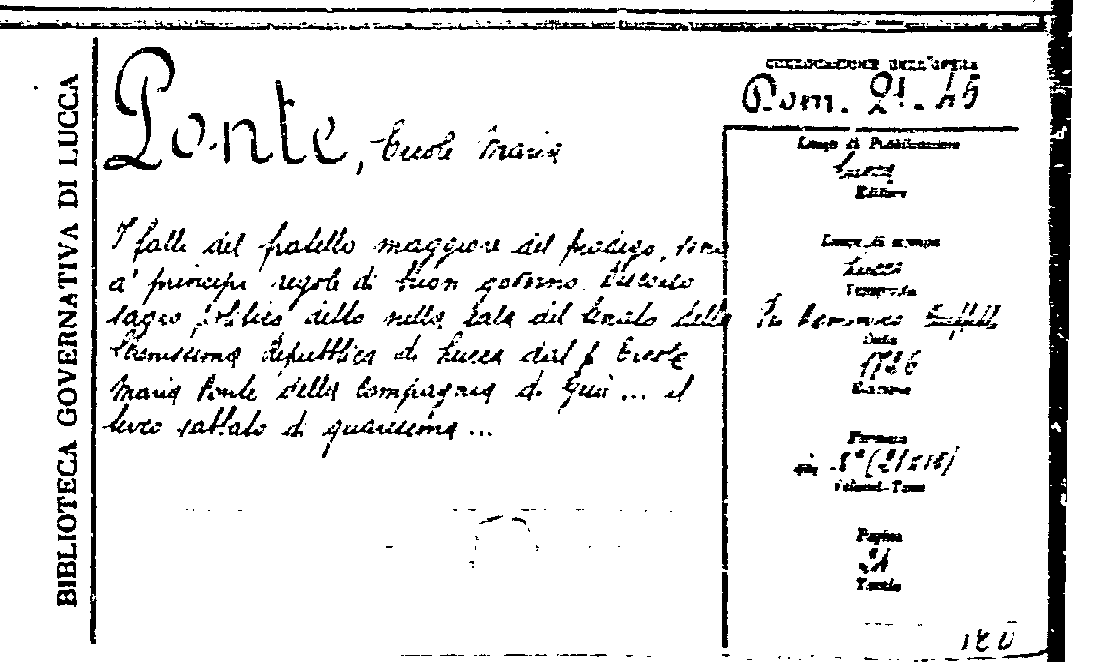 BIBLIOTECA GOVERNATIVA DI LUCCA
Ponte, Ercole Maria
I falli del fratello maggiore del prodigo, sono
a' principi regole di buon governo. Discorso
sagro politico detto nella sala del Senato della
Serenissima Repubblica di Lucca dal p. Ercole
Maria Ponte della Compagnia di Gesù ... il
terzo sabbato di quaresima ...
COLLOCAZIONE DELL'OPERA
Pom. 21. 45
Luogo di Pubblicazione
Lucca
Editore
Luogo di stampa
Lucca
Tipografia
Data
1726
Edizione
Formato
in 8° (21x15)
Volumi-Tomo
Pagine
21
Tavole